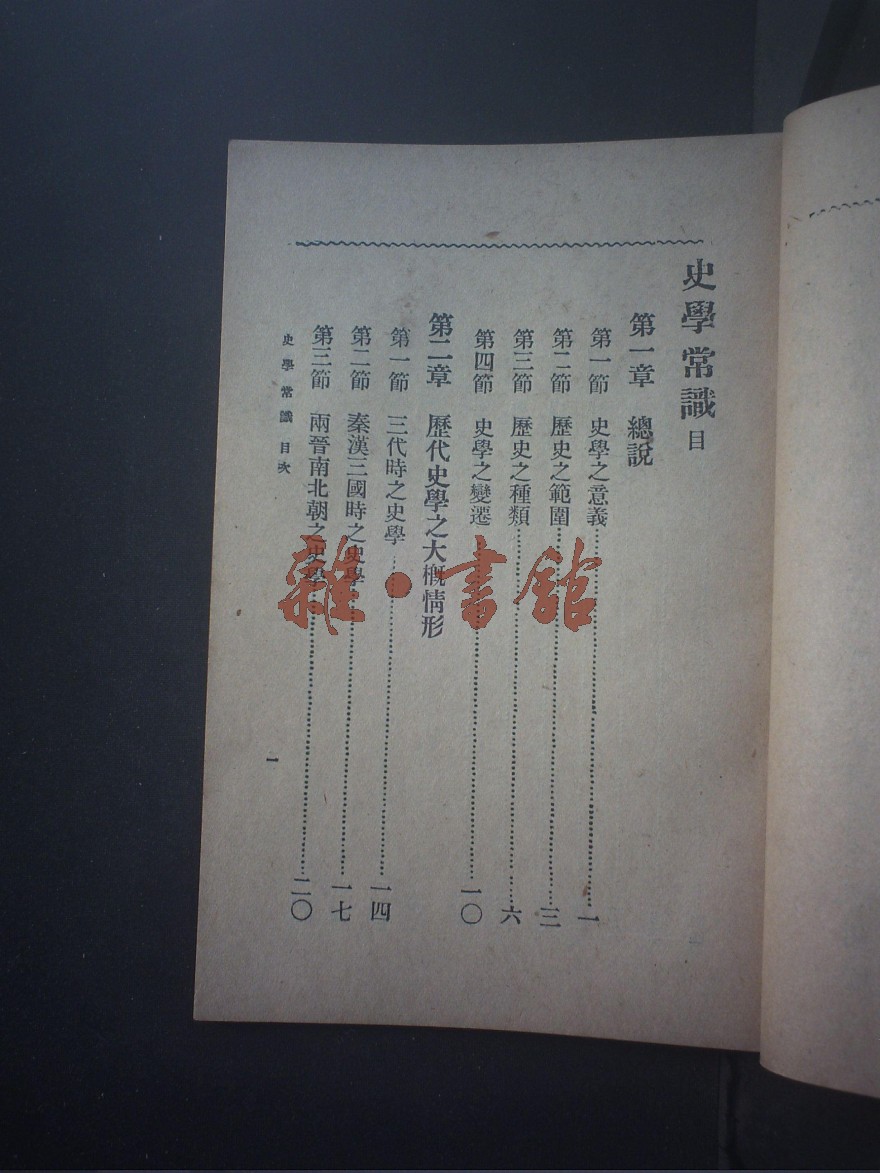 史學常識目
第一章 總說
第一節 史學之意義……一
第二節 歷史之範圍……三
第三節 歷史之種類……六
第四節 史學之變遷……一〇
第二章 歷代史學之大概情形
第一節 三代時之史學……一四
第二節 秦漢三國時之史學……一七
第三節 兩晉南北朝之史學……二〇
史學常識 目次
一
雜·書館